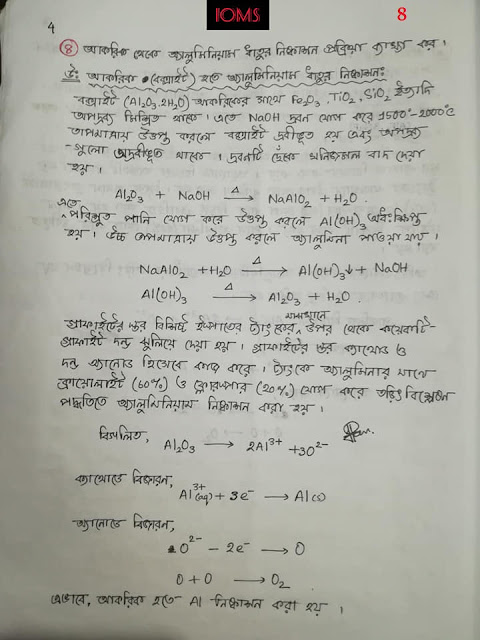 IOMS
8
4
(8) আকরিক থেকে অ্যালুমিনিয়াম ধাতুর নিষ্কাশন প্রক্রিয়া ব্যাখ্যা কর।
উঃ আকরিক (বক্সাইট) হতে অ্যালুমিনিয়াম ধাতুর নিষ্কাশন:
বক্সাইট (Al2O3.2H2O) আকরিকের সাথে Fe2O3, TiO2, SiO2 ইত্যাদি
অপদ্রব্য মিশ্রিত থাকে। এতে NaOH দ্রবন যোগ করে 1500°-2000°c
তাপমাত্রায় উত্তপ্ত করলে বক্সাইট দ্রবীভূত হয় এবং অপদ্রব্য
-গুলো অদ্রবীভূত থাকে। দ্রবনটি ছেঁকে খনিজমল বাদ দেয়া
হয়।
Al2O3 + NaOH →Δ NaAlO2 + H2O.
এতে পরিস্রুত পানি যোগ করে উত্তপ্ত করলে Al(OH)3 অধঃক্ষিপ্ত
হয়। উচ্চ তাপমাত্রায় উত্তপ্ত করলে অ্যালুমিনা পাওয়া যায়।
NaAlO2 + H2O →Δ Al(OH)3↓ + NaOH
Al(OH)3 →Δ Al2O3 + H2O
গ্রাফাইটের স্তর বিশিষ্ট ইস্পাতের ট্যাংকের মাঝখানে উপর থেকে কয়েকটি-
গ্রাফাইট দন্ড ঝুলিয়ে দেয়া হয়। গ্রাফাইটের স্তর ক্যাথোড ও
দন্ড এ্যানোড হিসেবে কাজ করে। ট্যাংকে অ্যালুমিনার সাথে
ক্রায়োলাইট (60%) ও ফ্লোরস্পার (20%) যোগ করে তড়িৎ বিশ্লেষণ
পদ্ধতিতে অ্যালুমিনিয়াম নিষ্কাশন করা হয়।
বিগলিত, Al2O3 → 2Al3+ + 3O2-
ক্যাথোডে বিজারন,
Al3+(aq) + 3e- → Al(s)
অ্যানোডে বিজারন,
O2- - 2e- → O
O + O → O2
এভাবে, আকরিক হতে Al নিষ্কাশন করা হয়।